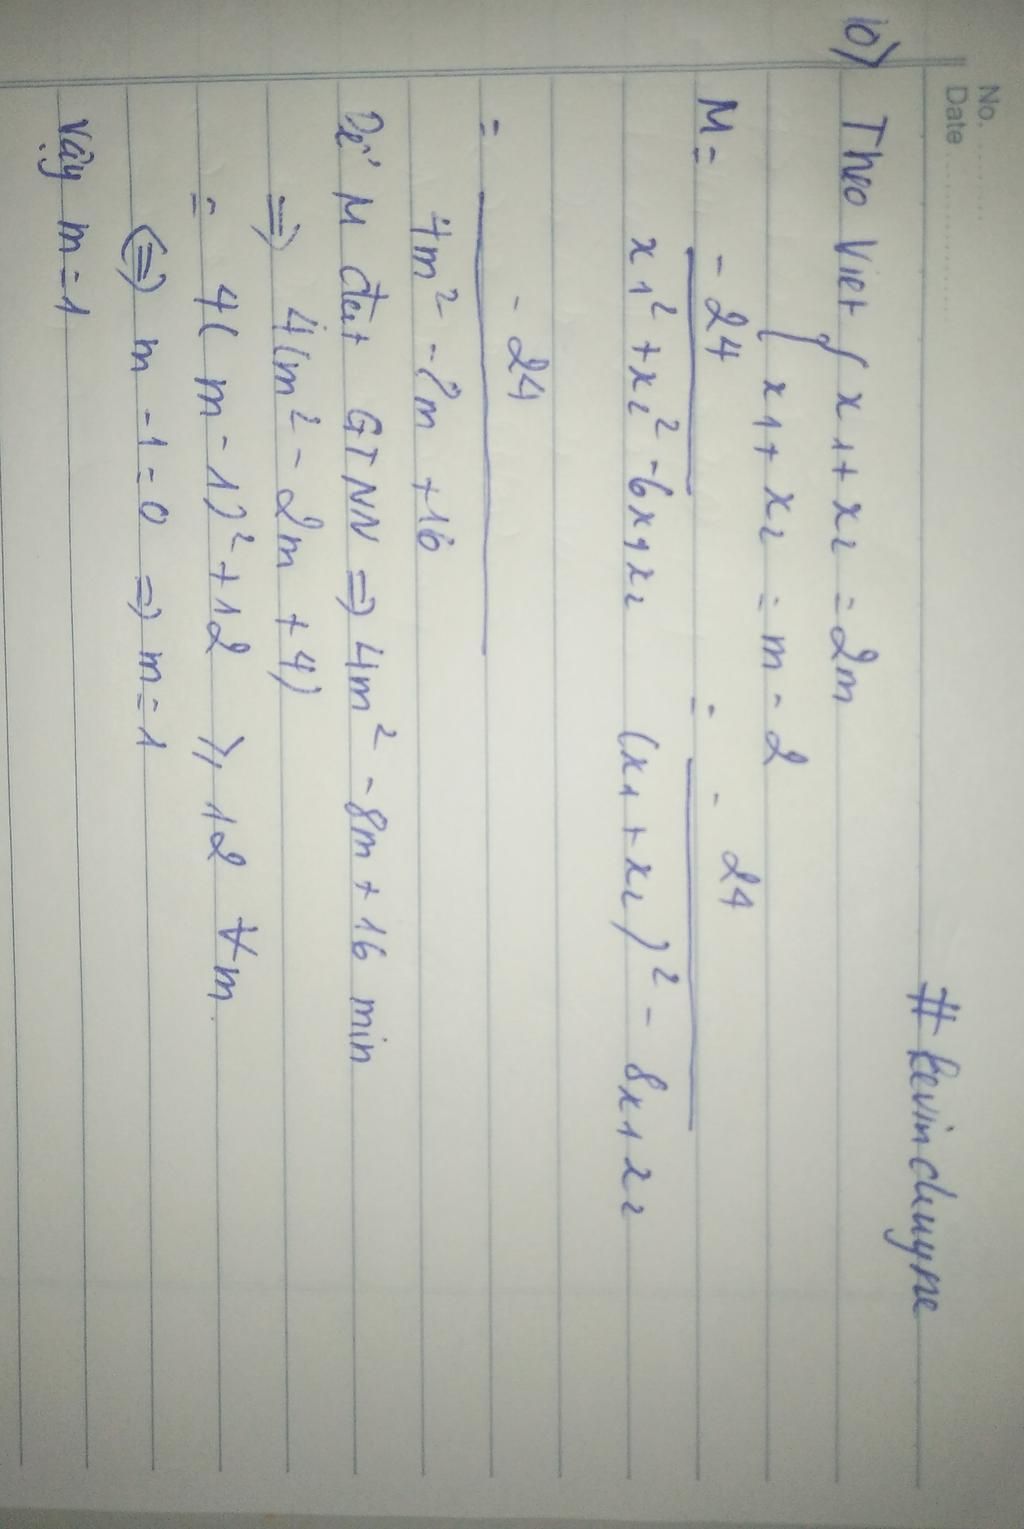 No.
Date
#kevinchuyne
b) Theo Viet { x1 + x2 = 2m
x1 + x2 = m - 2
M = -24 / x1² + x2² - 6x1x2 = -24 / (x1 + x2)² - 8x1x2
= -24 / 4m² - 8m + 16
Để M đạt GTNN => 4m² - 8m + 16 min
=> 4(m² - 2m + 4)
= 4(m - 1)² + 12 ≥ 12 ∀m.
(=) m - 1 = 0 => m = 1
Vậy m = 1